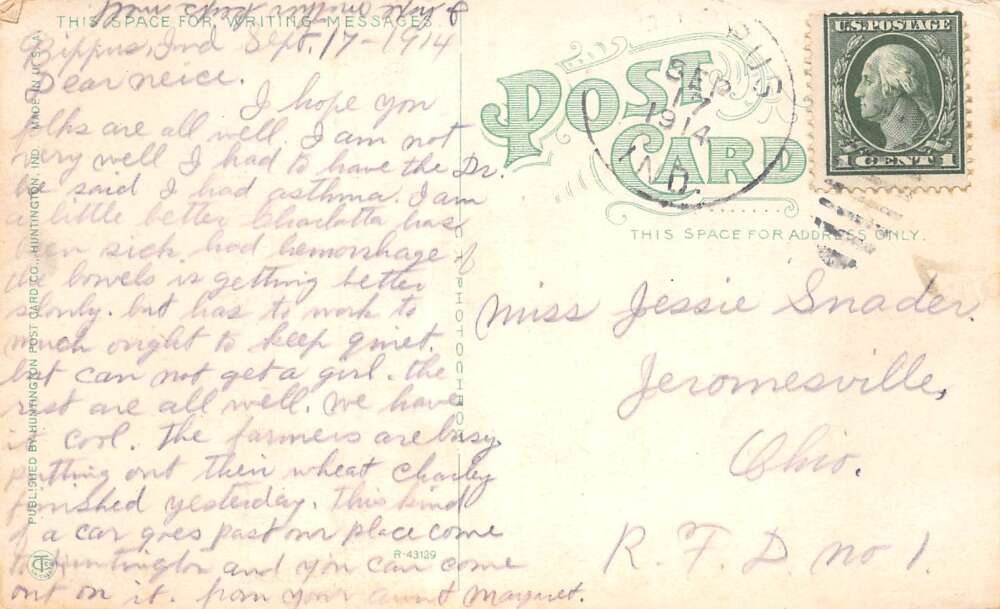 THIS SPACE FOR WRITING MESSAGES.
Bippus, Ind Sept. 17-1914
Dear neice.
I hope you
folks are all well. I am not
very well I had to have the Dr.
he said I had asthma. I am
a little better Charlotta has
been sick. had hemorshage of
the bowels is getting better
slowly. but has to work to
much ought to keep quiet.
but can not get a girl. the
rest are all well. we have
it cool. The farmers are busy
putting out their wheat Charley
finished yesterday. This kind
of a car goes past our place come
to Huntington and you can come
out on it. from your aunt Margaret.
PUBLISHED BY HUNTINGTON POST CARD CO., HUNTINGTON, IND. MADE IN U.S.A.
R-43129
POST CARD
SEP
17
1914
A
IND.
U.S. POSTAGE
1 CENT 1
THIS SPACE FOR ADDRESS ONLY.
Miss Jessie Snader.
Jeromesville,
Ohio.
R. F. D. no 1.